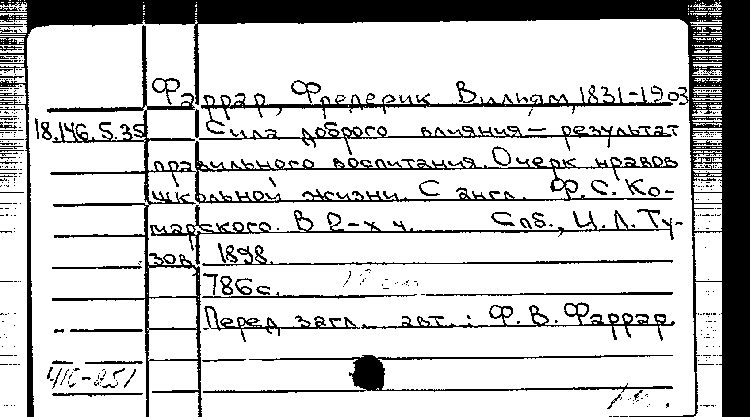 Фаррар, Фредерик Вильям, 1831-1903
18.146.5.35 Сила доброго влияния — результат
правильного воспитания. Очерк нравов
школьной жизни. С англ. Ф.С. Ко-
марского. В 2-х ч. Спб., И.Л. Ту-
зов, 1898.
786 с.
Перед загл. авт.: Ф.В. Фаррар.